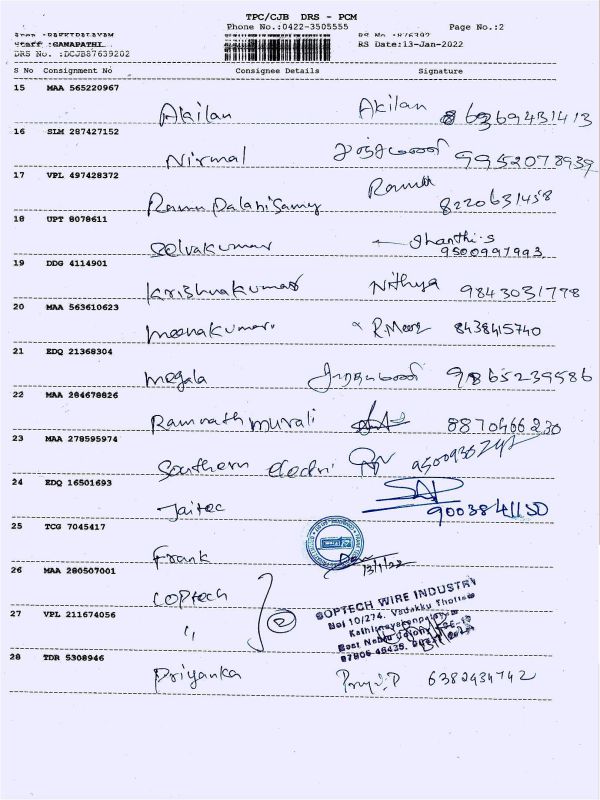 TPC/CJB DRS - PCM
Phone No.:0422-3505555 Page No.:2
Staff :GANAPATHI
DRS No. :DCJB87639202 RS Date:13-Jan-2022
S No Consignment No Consignee Details Signature
15 MAA 565220967
Akilan Akilan 86369431413
16 SLM 287427152
Nirmal 9952078939
17 VPL 497428372
Ramu Palanisamy Ramu 8220631458
18 UPT 8078611
Selvakumar Shanthi.S
9500997993
19 DDG 4114901
Krishnakumar Nithya 9843031778
20 MAA 563610623
meenakumari 8438415740
21 EDQ 21368304
megala 9865239586
22 MAA 284678826
Ramnath murali 8870466230
23 MAA 278595974
Southern electri
24 EDQ 16501693
Jaitec 9003841150
25 TCG 7045417
Frank 13/1/22
26 MAA 280507001
coptech
COPTECH WIRE INDUSTRY
No: 10/274, Vadakku Thottam
27 VPL 211674056
" 2
28 TDR 5308946
Priyanka Priya.P 6382934742